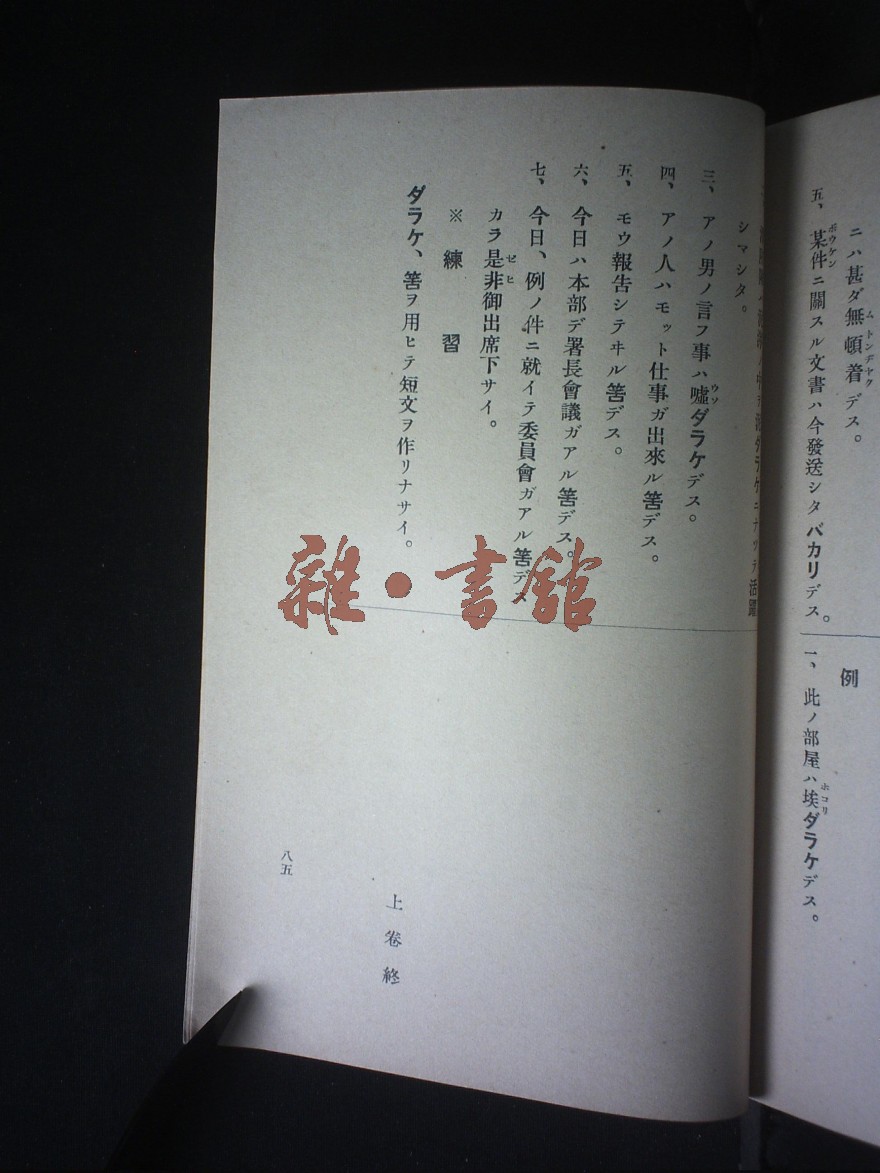 ニハ甚ダ無頓着デス。
ム トンヂヤク
五、某件ニ關スル文書ハ今發送シタバカリデス。
ボウケン
例
一、此ノ部屋ハ埃ダラケデス。
ホコリ
ダラケニナツテ活躍
シマシタ。
三、アノ男ノ言フ事ハ嘘ダラケデス。
ウソ
四、アノ人ハモット仕事ガ出來ル筈デス。
五、モウ報告シテヰル筈デス。
六、今日ハ本部デ署長會議ガアル筈デス。
七、今日、例ノ件ニ就イテ委員會ガアル筈デス
カラ是非御出席下サイ。
ゼヒ
※ 練習
ダラケ、筈ヲ用ヒテ短文ヲ作リナサイ。
上卷終
八五
雜·書館